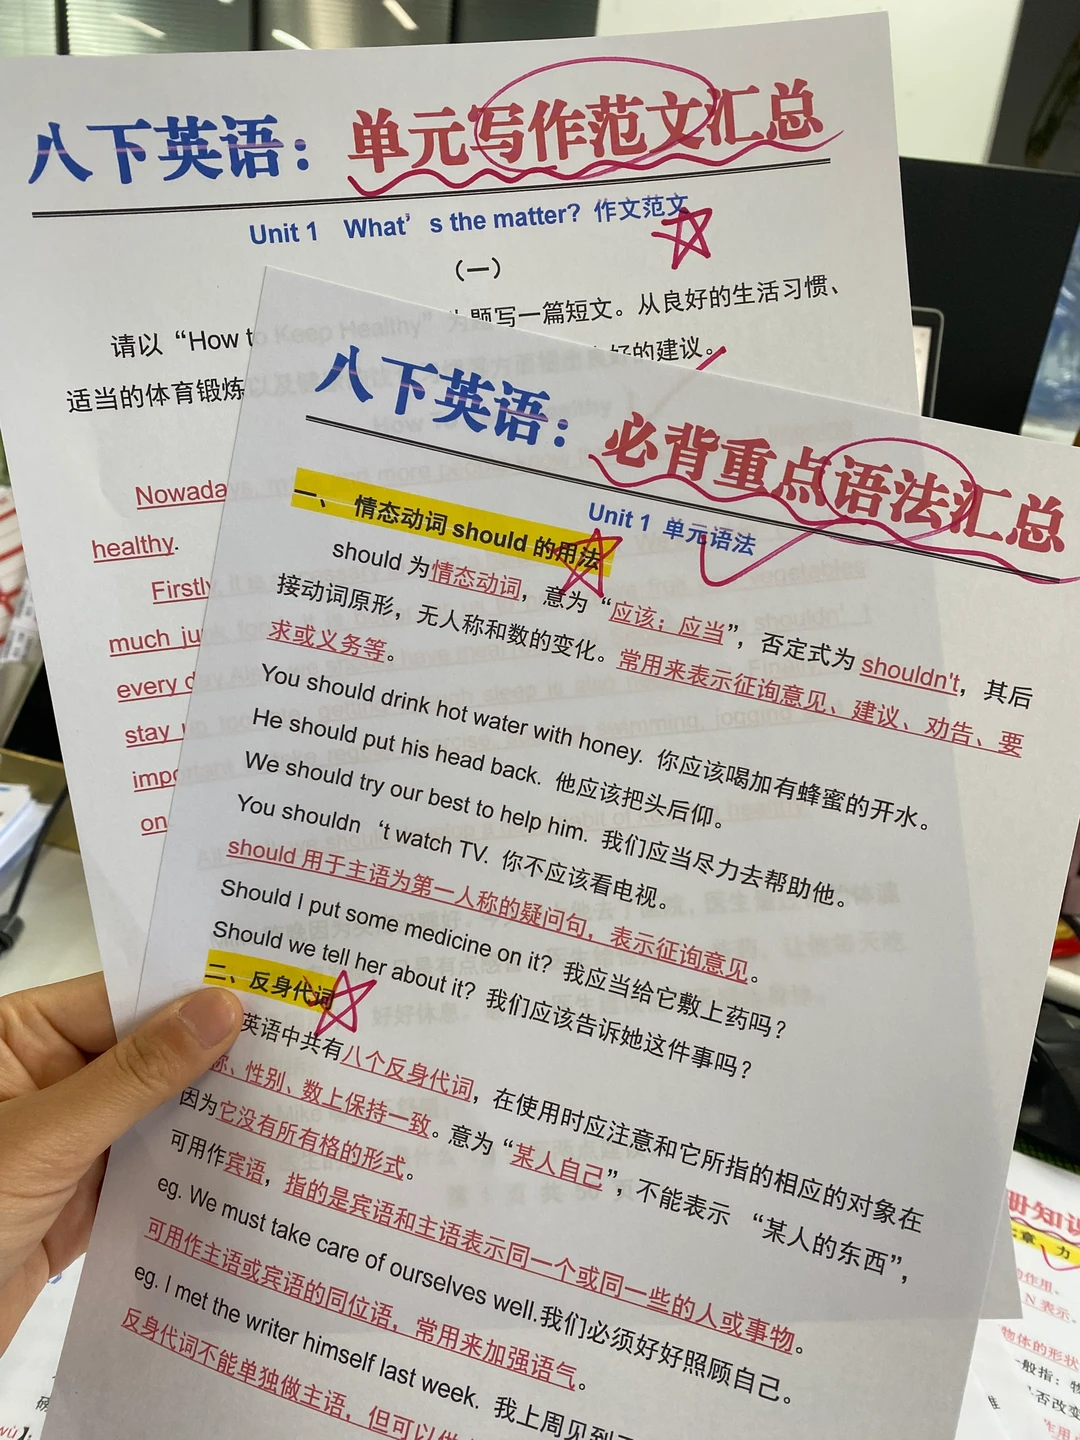 八下英语：单元写作范文汇总
Unit 1 What's the matter? 作文范文
（一）
请以“How to Keep Healthy”为题写一篇短文。从良好的生活习惯、
适当的体育锻炼
好的建议。
Nowada
healthy.
Firstly
much ju
every d
stay
impo
on
八下英语：必背重点语法汇总
Unit 1 单元语法
一、 情态动词 should 的用法
should 为情态动词，意为“应该；应当”，否定式为 shouldn't，其后
接动词原形，无人称和数的变化。常用来表示征询意见、建议、劝告、要
求或义务等。
You should drink hot water with honey. 你应该喝加有蜂蜜的开水。
He should put his head back. 他应该把头后仰。
We should try our best to help him. 我们应当尽力去帮助他。
You shouldn‘t watch TV. 你不应该看电视。
should 用于主语为第一人称的疑问句，表示征询意见。
Should I put some medicine on it? 我应当给它敷上药吗？
Should we tell her about it? 我们应该告诉她这件事吗？
二、反身代词
英语中共有八个反身代词，在使用时应注意和它所指的相应的对象在
称、性别、数上保持一致。意为“某人自己”，不能表示 “某人的东西”，
因为它没有所有格的形式。
可用作宾语，指的是宾语和主语表示同一个或同一些的人或事物。
eg. We must take care of ourselves well.我们必须好好照顾自己。
可用作主语或宾语的同位语，常用来加强语气。
eg. I met the writer himself last week. 我上周见到
反身代词不能单独做主语，但可以做
册知识
章、力
的作用。
N 表示。
物体的形状
般指：物
是否改变
作用